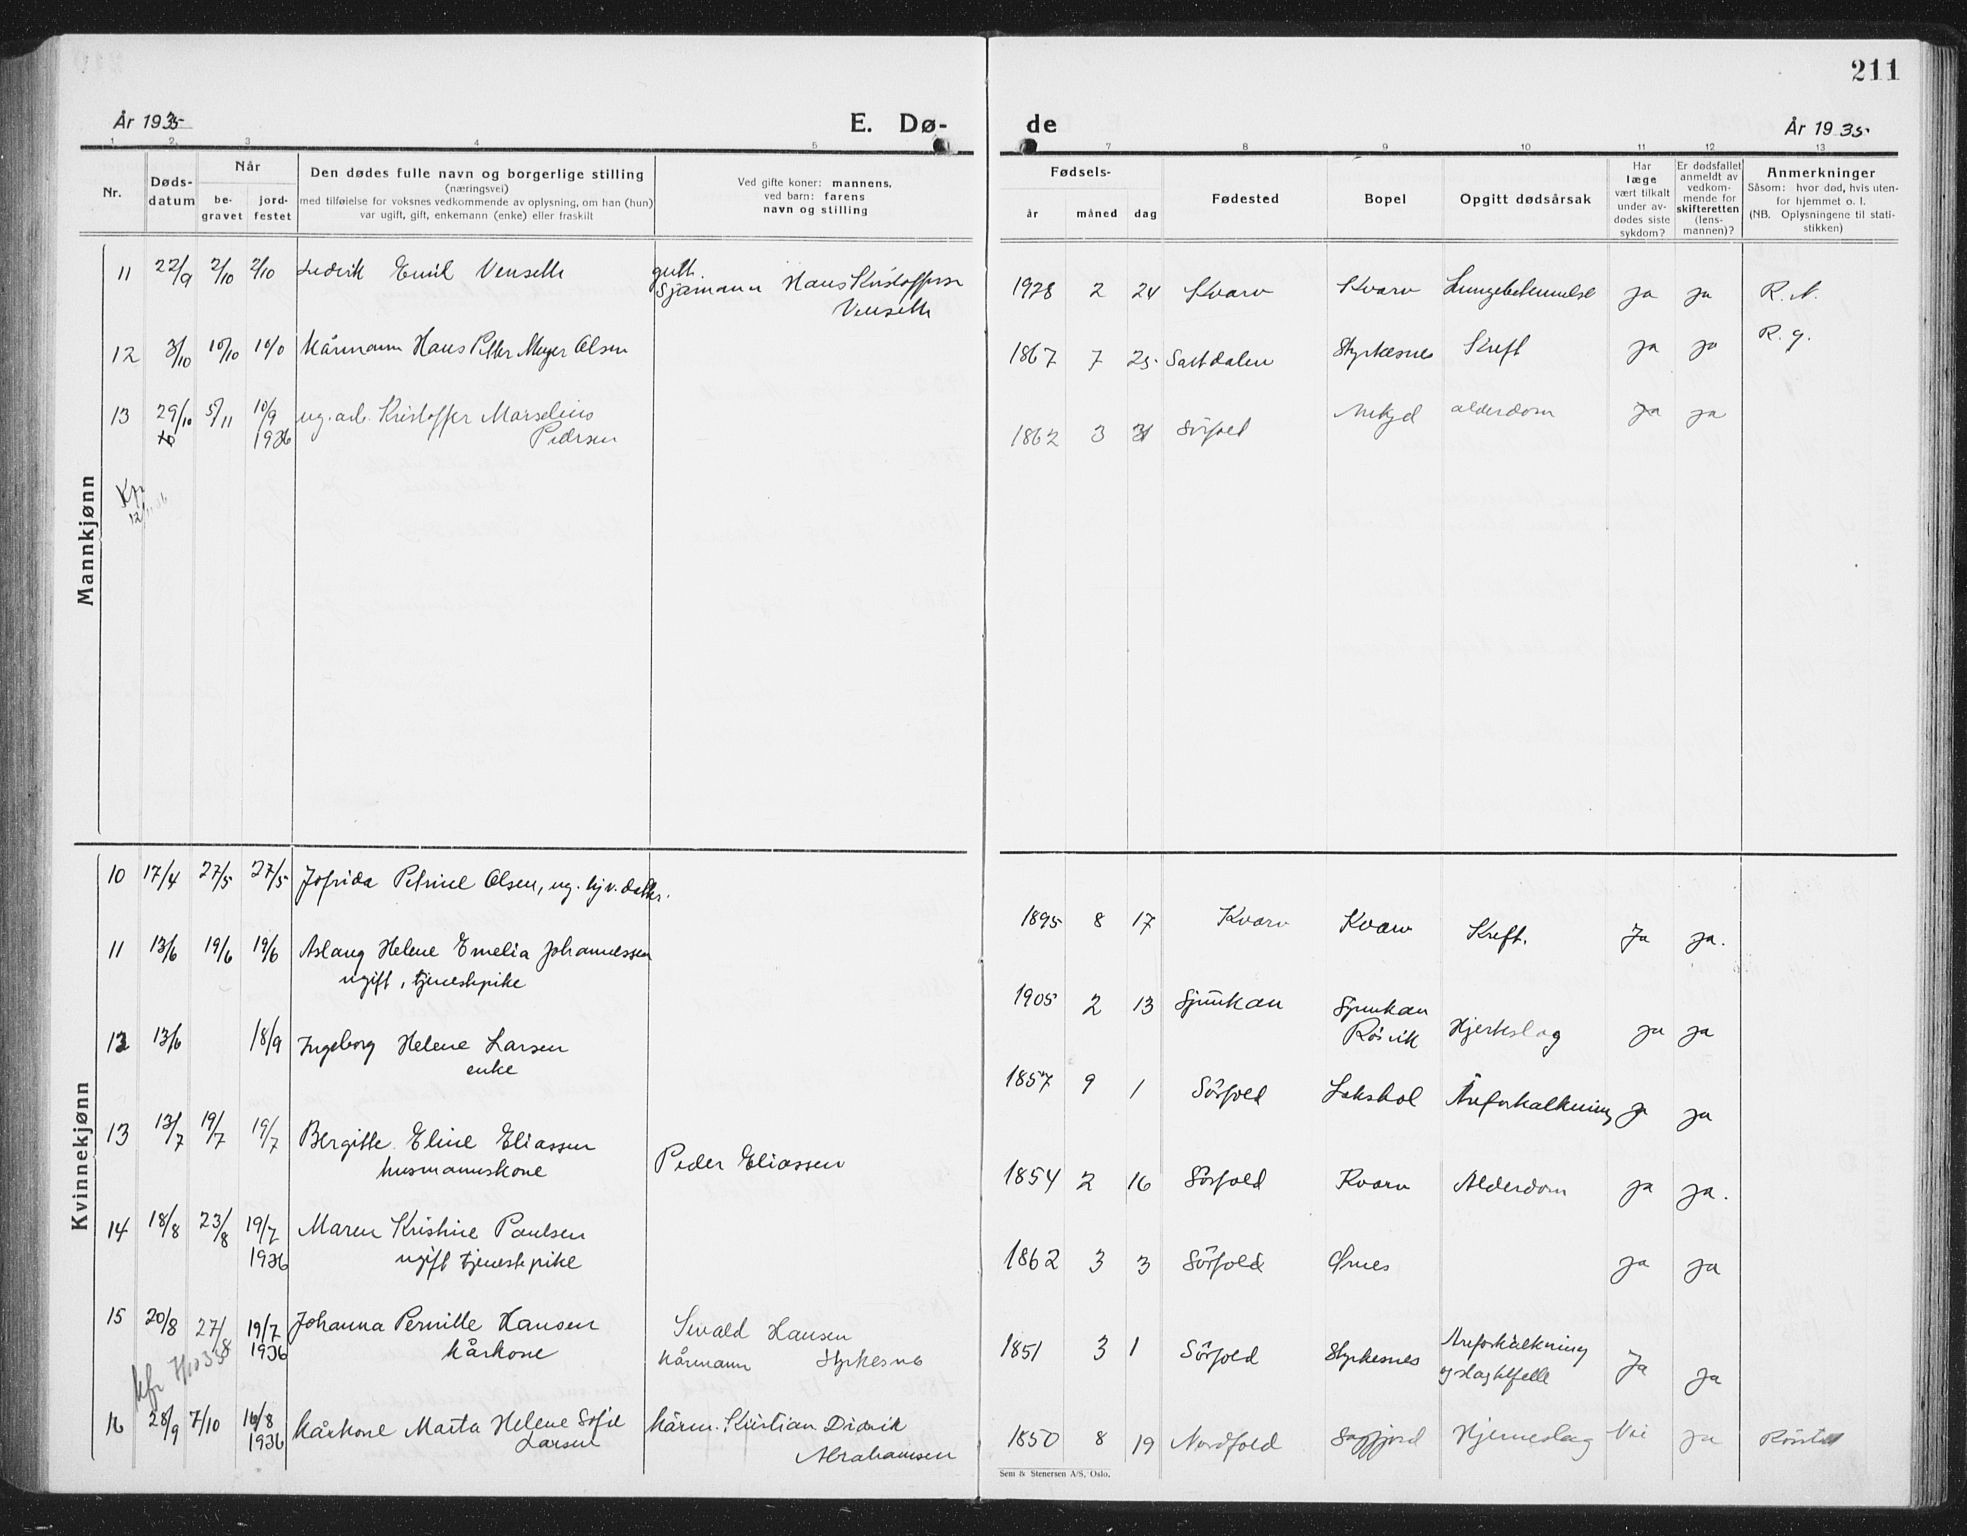 211
År 1935
E. Dø-
de
År 1935
1 2 3 4 5 7 8 9 10 11 12 13
Nr.
Døds-
datum
Når
be-
gravet
jord-
festet
Den dødes fulle navn og borgerlige stilling
(næringsvei)
med tilføielse for voksnes vedkommende av oplysning, om han (hun)
var ugift, gift, enkemann (enke) eller fraskilt
Ved gifte koner: mannens,
ved barn: farens
navn og stilling
Fødsels-
år måned dag
Fødested
Bopel
Opgitt dødsårsak
Har
læge
vært tilkalt
under av-
dødes siste
sykdom?
Er dødsfallet
anmeldt av
vedkom-
mende for
skifteretten
(lens-
mannen)?
Anmerkninger
Såsom: hvor død, hvis uten-
for hjemmet o. l.
(NB. Oplysningene til stati-
stikken)
Mannkjønn
11 22/9 2/10 2/10 Ludvik Emil Venseth
Sjømann Hans Kristoffersen
Venseth
1928 2 24 Kvarv Kvarv Lungebetennelse ja ja
12 3/10 10/10 10/10 Kårmann Hans Petter Meyer Olsen 1867 7 25 Saltdalen Styrkesnes Kreft ja ja
13 29/10 5/11 10/9
1936
ug. arb. Kristoffer Marselius
Pedersen
1862 3 31 Sörfold alderdom ja ja
Kvinnekjønn
10 17/4 27/5 27/5 Jofrida Petrine Olsen, ug. hjv. datter. 1895 8 17 Kvarv Kvarv Kreft. Ja ja.
11 13/6 19/6 19/6 Aslaug Helene Emelia Johannessen
ugift, tjenestepike
1905 2 13 Sjunkan Sjunkan
Rösvik
Hjerteslag ja ja
12 13/6 18/9 Ingeborg Helene Larsen
enke
1857 9 1 Sörfold Lakshol Åreforkalkning ja ja
13 13/7 19/7 19/7 Bergitte Eline Eliassen
husmannskone
Peder Eliassen
1854 2 16 Sörfold Kvarv Alderdom ja ja.
14 18/8 23/8 19/7
1936
Maren Kristine Paulsen
ugift tjenestepike
1862 3 3 Sörfold Ørnes ja ja
15 20/8 27/8 19/7
1936
Johanna Pernille Hansen
kårkone
Sivald Hansen
kårmann Styrkesnes
1851 3 1 Sörfold Styrkesnes Åreforkalkning
og slagtilfelle
Ja ja
16 28/9 7/10 16/8
1936
Kårkone Marta Helene Sofie
Larsen
kårm. Kristian Didrik
Abrahamsen
1850 8 19 Nordfold Sagfjord Hjerneslag Nei ja
Sem & Stenersen A/S, Oslo.